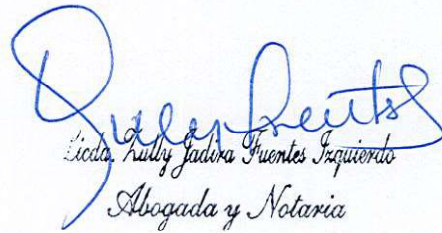 Licda. Zully Jadira Fuentes Izquierdo
Abogada y Notaria